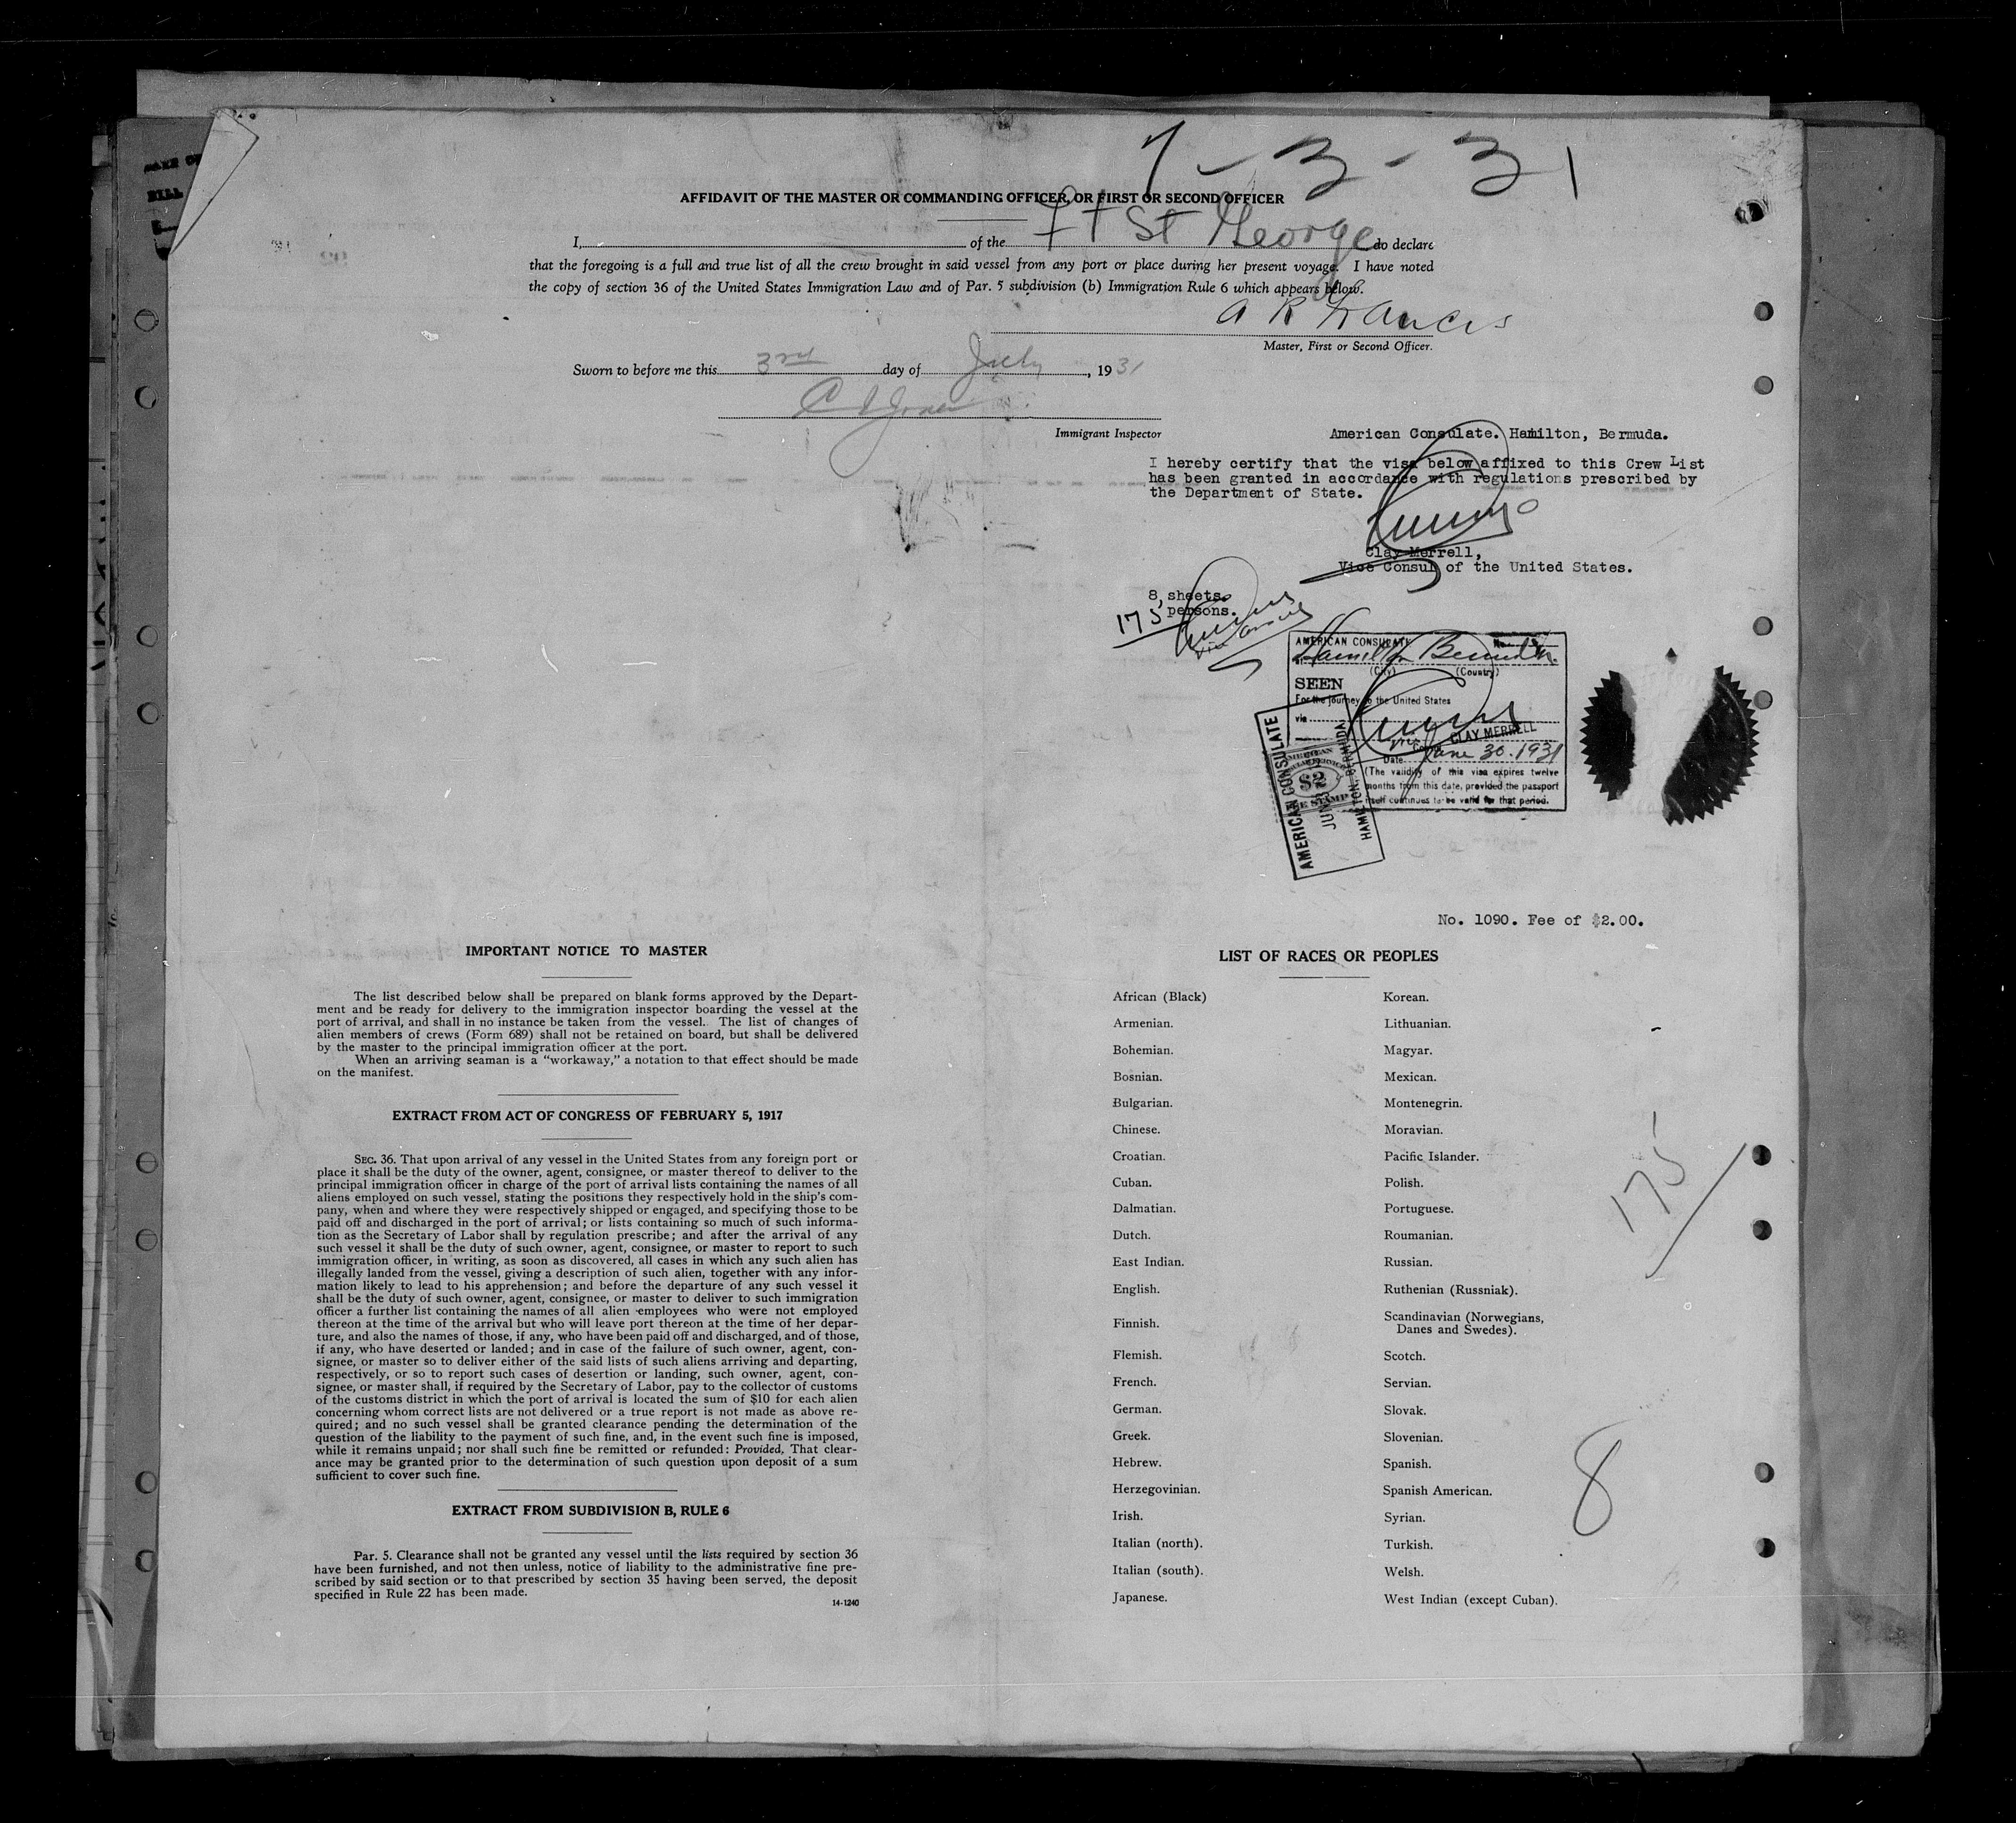 7-3-31
AFFIDAVIT OF THE MASTER OR COMMANDING OFFICER, OR FIRST OR SECOND OFFICER
I, of the Ft St George do declare
that the foregoing is a full and true list of all the crew brought in said vessel from any port or place during her present voyage. I have noted
the copy of section 36 of the United States Immigration Law and of Par. 5 subdivision (b) Immigration Rule 6 which appears below.
A R Francis
Master, First or Second Officer.
Sworn to before me this 3rd day of July, 1931
Immigrant Inspector
American Consulate. Hamilton, Bermuda.
I hereby certify that the visa below affixed to this Crew List
has been granted in accordance with regulations prescribed by
the Department of State.
Clay Merrell,
Vice Consul of the United States.
8 sheets.
175 persons.
AMERICAN CONSULATE
Hamilton Bermuda
(City) (Country)
SEEN
For the journey to the United States
via
CLAY MERRELL
Date June 30. 1931
(The validity of this visa expires twelve
months from this date, provided the passport
itself continues to be valid for that period.
AMERICAN CONSULATE
HAMILTON, BERMUDA
$2
No. 1090. Fee of $2.00.
IMPORTANT NOTICE TO MASTER
The list described below shall be prepared on blank forms approved by the Depart-
ment and be ready for delivery to the immigration inspector boarding the vessel at the
port of arrival, and shall in no instance be taken from the vessel. The list of changes of
alien members of crews (Form 689) shall not be retained on board, but shall be delivered
by the master to the principal immigration officer at the port.
When an arriving seaman is a "workaway," a notation to that effect should be made
on the manifest.
EXTRACT FROM ACT OF CONGRESS OF FEBRUARY 5, 1917
SEC. 36. That upon arrival of any vessel in the United States from any foreign port or
place it shall be the duty of the owner, agent, consignee, or master thereof to deliver to the
principal immigration officer in charge of the port of arrival lists containing the names of all
aliens employed on such vessel, stating the positions they respectively hold in the ship's com-
pany, when and where they were respectively shipped or engaged, and specifying those to be
paid off and discharged in the port of arrival; or lists containing so much of such informa-
tion as the Secretary of Labor shall by regulation prescribe; and after the arrival of any
such vessel it shall be the duty of such owner, agent, consignee, or master to report to such
immigration officer, in writing, as soon as discovered, all cases in which any such alien has
illegally landed from the vessel, giving a description of such alien, together with any infor-
mation likely to lead to his apprehension; and before the departure of any such vessel it
shall be the duty of such owner, agent, consignee, or master to deliver to such immigration
officer a further list containing the names of all alien employees who were not employed
thereon at the time of the arrival but who will leave port thereon at the time of her depar-
ture, and also the names of those, if any, who have been paid off and discharged, and of those,
if any, who have deserted or landed; and in case of the failure of such owner, agent, con-
signee, or master so to deliver either of the said lists of such aliens arriving and departing,
respectively, or so to report such cases of desertion or landing, such owner, agent, con-
signee, or master shall, if required by the Secretary of Labor, pay to the collector of customs
of the customs district in which the port of arrival is located the sum of $10 for each alien
concerning whom correct lists are not delivered or a true report is not made as above re-
quired; and no such vessel shall be granted clearance pending the determination of the
question of the liability to the payment of such fine, and, in the event such fine is imposed,
while it remains unpaid; nor shall such fine be remitted or refunded: Provided, That clear-
ance may be granted prior to the determination of such question upon deposit of a sum
sufficient to cover such fine.
EXTRACT FROM SUBDIVISION B, RULE 6
Par. 5. Clearance shall not be granted any vessel until the lists required by section 36
have been furnished, and not then unless, notice of liability to the administrative fine pre-
scribed by said section or to that prescribed by section 35 having been served, the deposit
specified in Rule 22 has been made.
14-1240
LIST OF RACES OR PEOPLES
African (Black)
Armenian.
Bohemian.
Bosnian.
Bulgarian.
Chinese.
Croatian.
Cuban.
Dalmatian.
Dutch.
East Indian.
English.
Finnish.
Flemish.
French.
German.
Greek.
Hebrew.
Herzegovinian.
Irish.
Italian (north).
Italian (south).
Japanese.
Korean.
Lithuanian.
Magyar.
Mexican.
Montenegrin.
Moravian.
Pacific Islander.
Polish.
Portuguese.
Roumanian.
Russian.
Ruthenian (Russniak).
Scandinavian (Norwegians,
Danes and Swedes).
Scotch.
Servian.
Slovak.
Slovenian.
Spanish.
Spanish American.
Syrian.
Turkish.
Welsh.
West Indian (except Cuban).
175
8